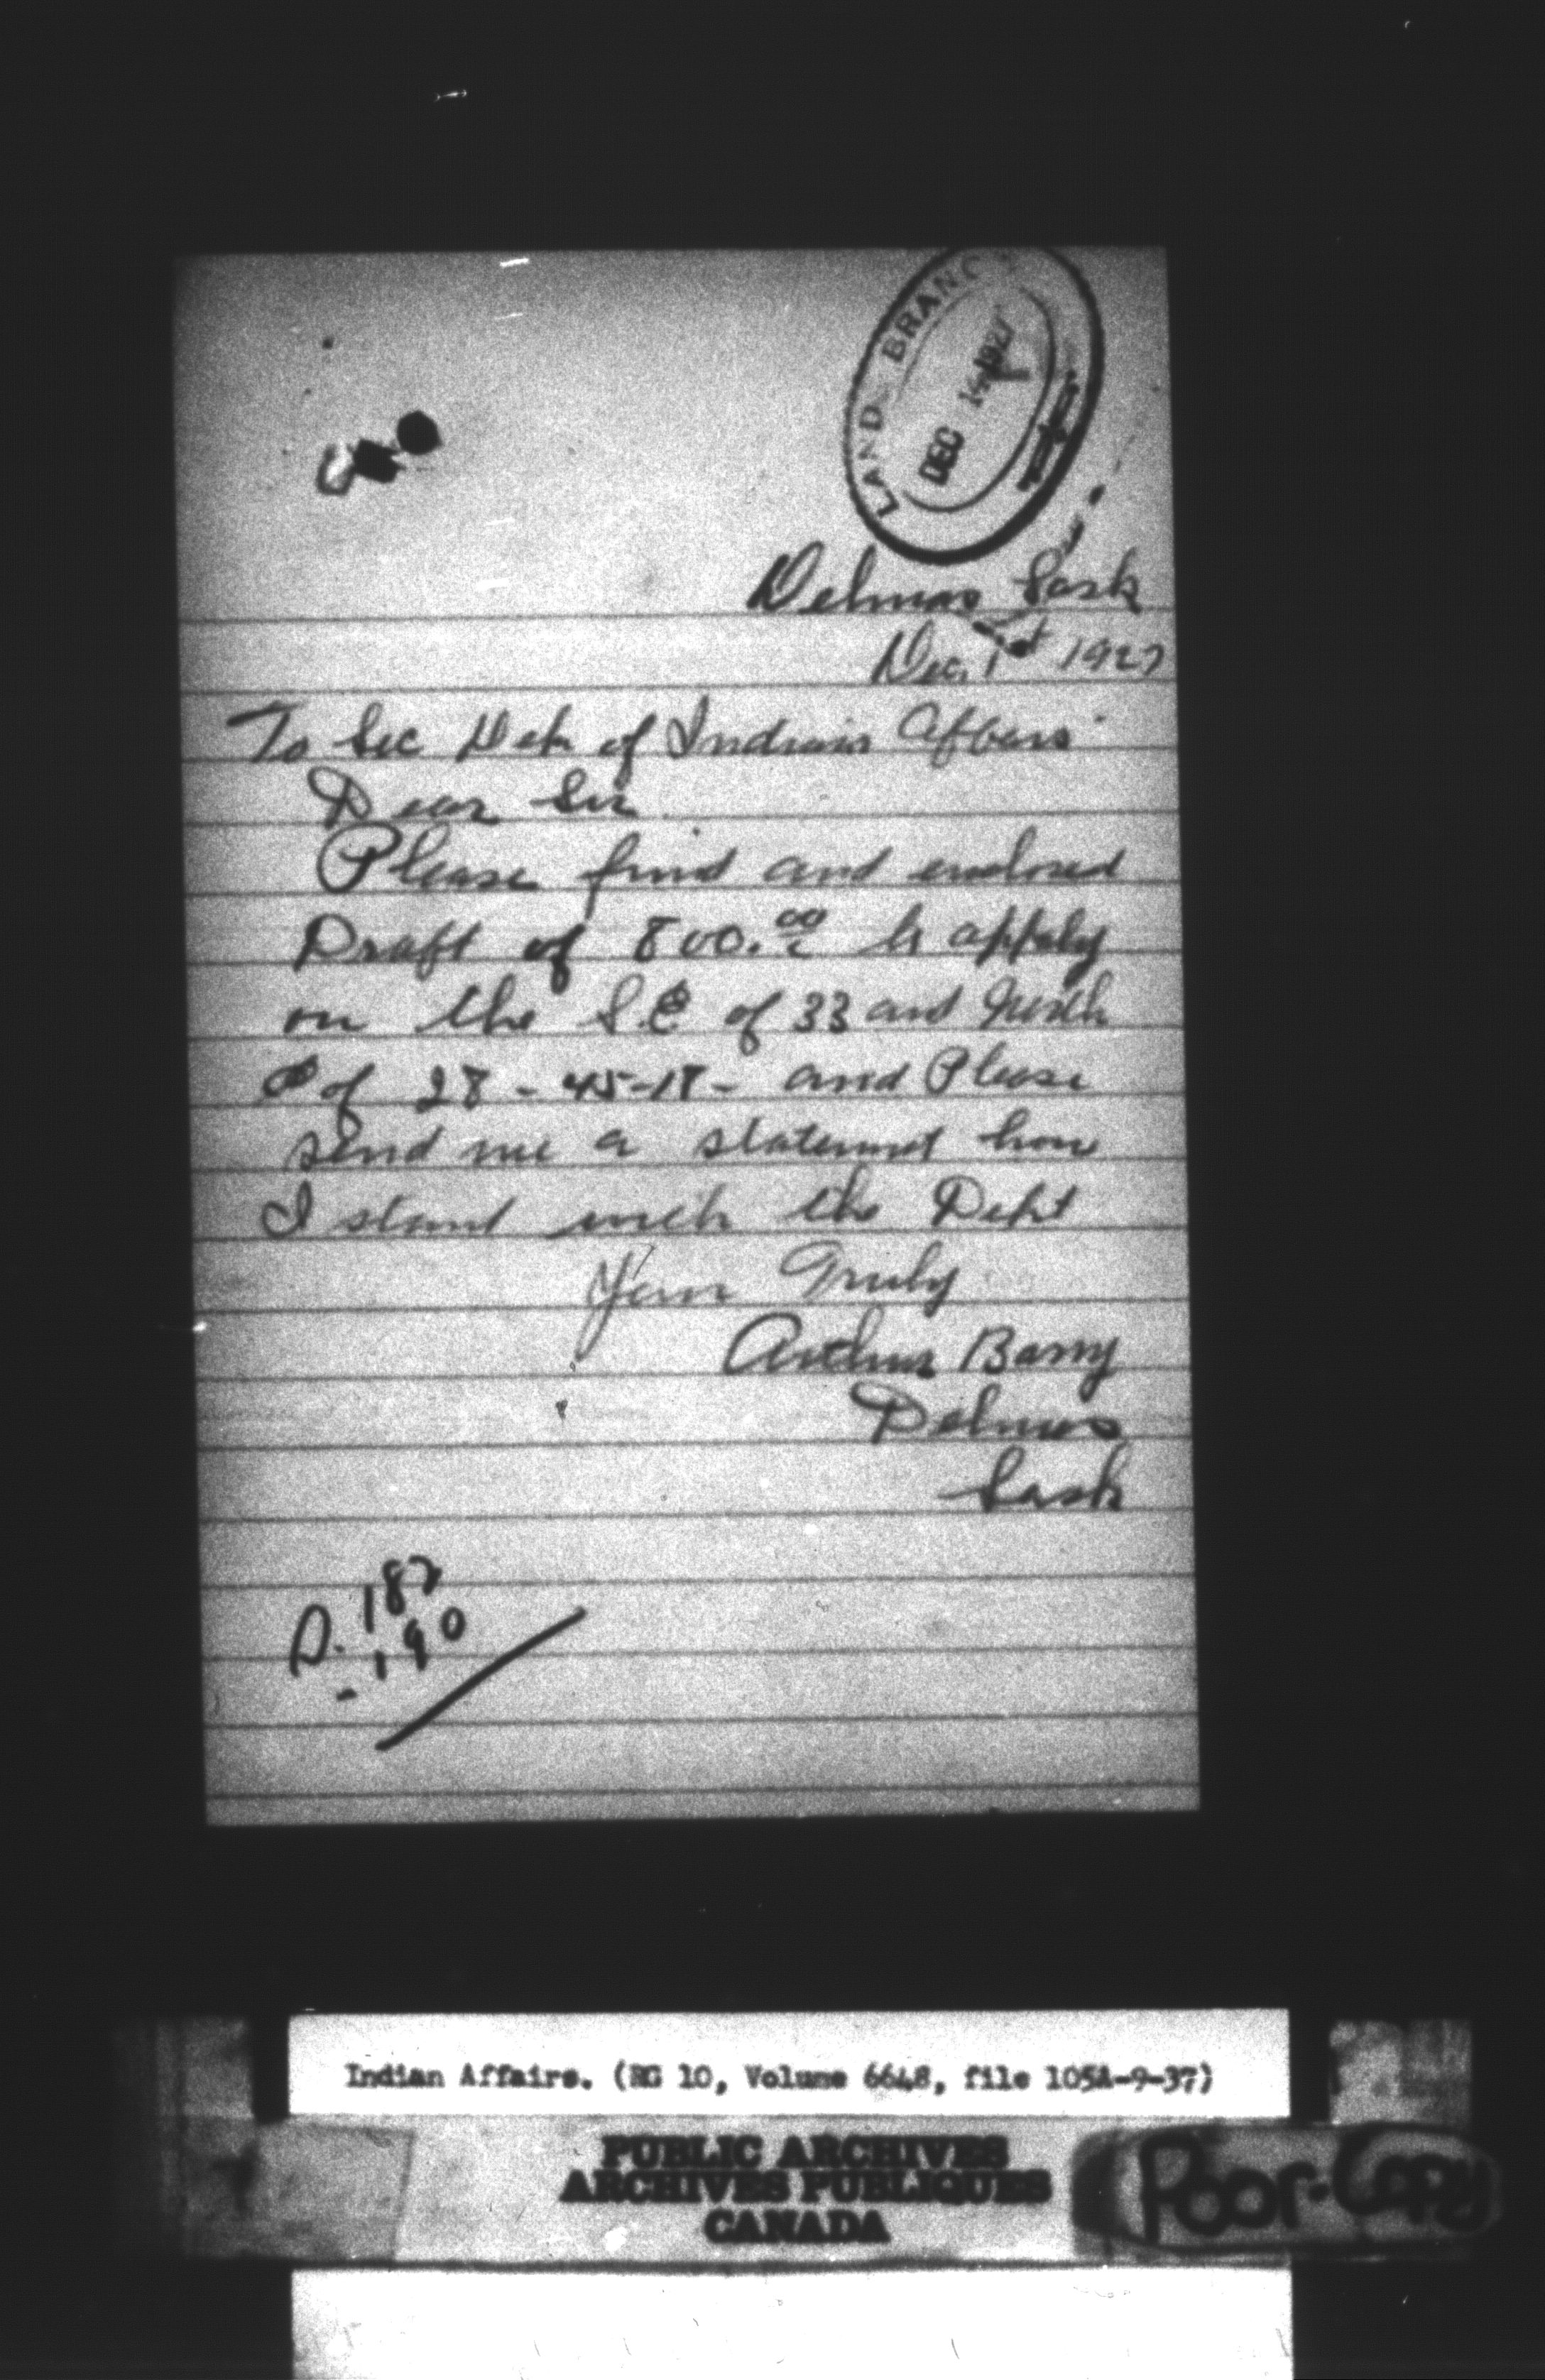 LANDS BRANCH
DEC 1927
Delmas Sask
Dec. 1st 1927
To Sec Dept of Indian Affairs
Dear Sir
Please find and enclosed
Draft of 800.00 to apply
on the S.E of 33 and North
E of 28 - 45-18 - and Please
send me a statement how
I stand with the Dept
Yours Truly
Arthur Barry
Delmas
Sask
D. 182
- 190
Indian Affairs. (RG 10, Volume 6648, file 105A-9-37)
PUBLIC ARCHIVES
ARCHIVES PUBLIQUES
CANADA
Poor-Copy